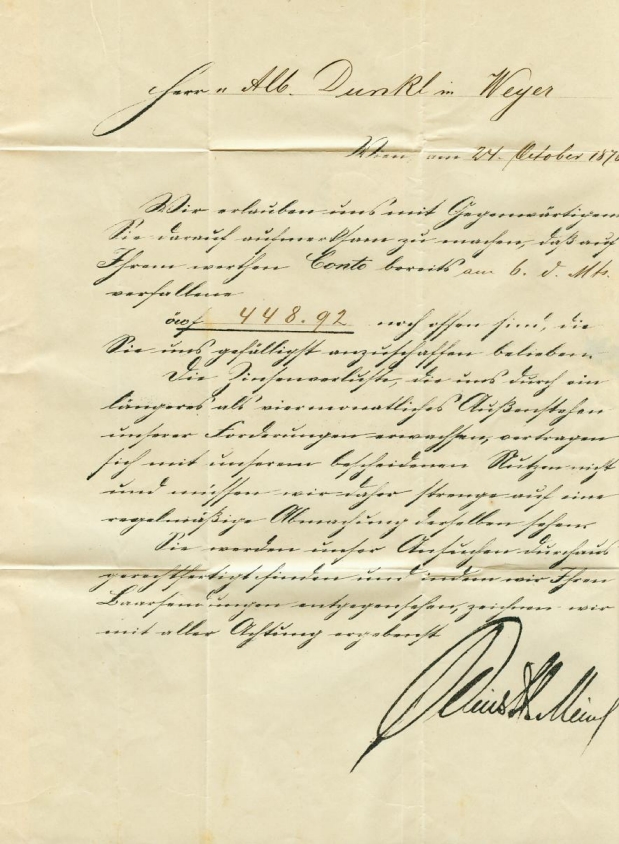 Herrn Alb. Dunkl in Weyer
Wien, am 24. October 187
Wir erlauben uns mit Gegenwärtigem
Sie darauf aufmerksam zu machen, daß auf
Ihrem werthen Conto bereits am 6. d. Mts.
verfallene
öwf 448.92 noch offen sind, die
Sie uns gefälligst anzuschaffen belieben.
Die Zinsenverluste, die uns durch ein
längeres als viermonatliches Außenstehen
unserer Forderungen erwachsen, vertragen
sich mit unserem bescheidenen Nutzen nicht
und müssen wir daher strenge auf eine
regelmäßige Abmachung derselben sehen.
Sie werden unser Ansuchen durchaus
gerechtfertigt finden und indem wir Ihren
Baarsendungen entgegensehen, zeichnen wir
mit aller Achtung ergebenst